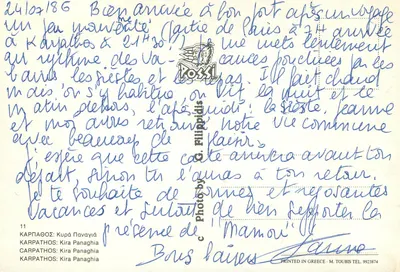 24/07/86 Bien arrivée à bon port après un voyage
un peu mouvementé. Partie de Paris à 7H arrivée
à Karpathos à 21H30. Je me mets lentement
au rythme des vacances ponctuées par les
bains les siestes et les repas. Il fait chaud
mais on s'y habitue, on vit la nuit et le
matin dehors, l'après-midi, la sieste, Jeanne
et moi avons retrouvé notre vie commune
avec beaucoup de plaisir.
J'espère que cette carte arrivera avant ton
départ, sinon tu l'auras à ton retour.
Je te souhaite de bonnes et reposantes
vacances et surtout de bien supporter la
présence de "Mamou"
Bons baisers
ROSSI
c Photo by G. Filippidis
11
ΚΑΡΠΑΘΟΣ: Κυρά Παναγιά
KARPATHOS: Kira Panaghia
CARPATHOS: Kira Panaghia
KARPATHOS: Kira Panaghia
PRINTED IN GREECE - M. TOUBIS TEL. 9923874